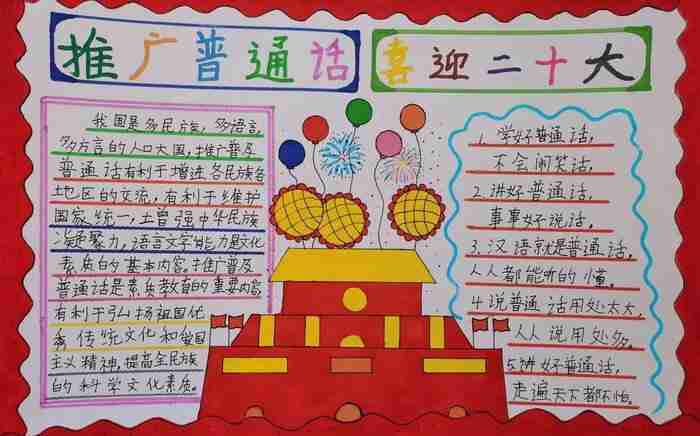 推广普通话
喜迎二十大
我国是多民族，多语言，
多方言的人口大国，推广普及
普通话有利于增进各民族各
地区的交流，有利于维护
国家统一，增强中华民族
凝聚力，语言文字能力是文化
素质的基本内容。推广普及
普通话是素质教育的重要内容
有利于弘扬祖国优
秀传统文化和爱国
主义精神，提高全民族
的科学文化素质。
1.学好普通话，
不会闹笑话，
2.讲好普通话，
事事好说话，
3.汉语就是普通话，
人人都能听的懂。
4.说普通话用处太大，
人人说用处多。
5.讲好普通话，
走遍天下都不怕。